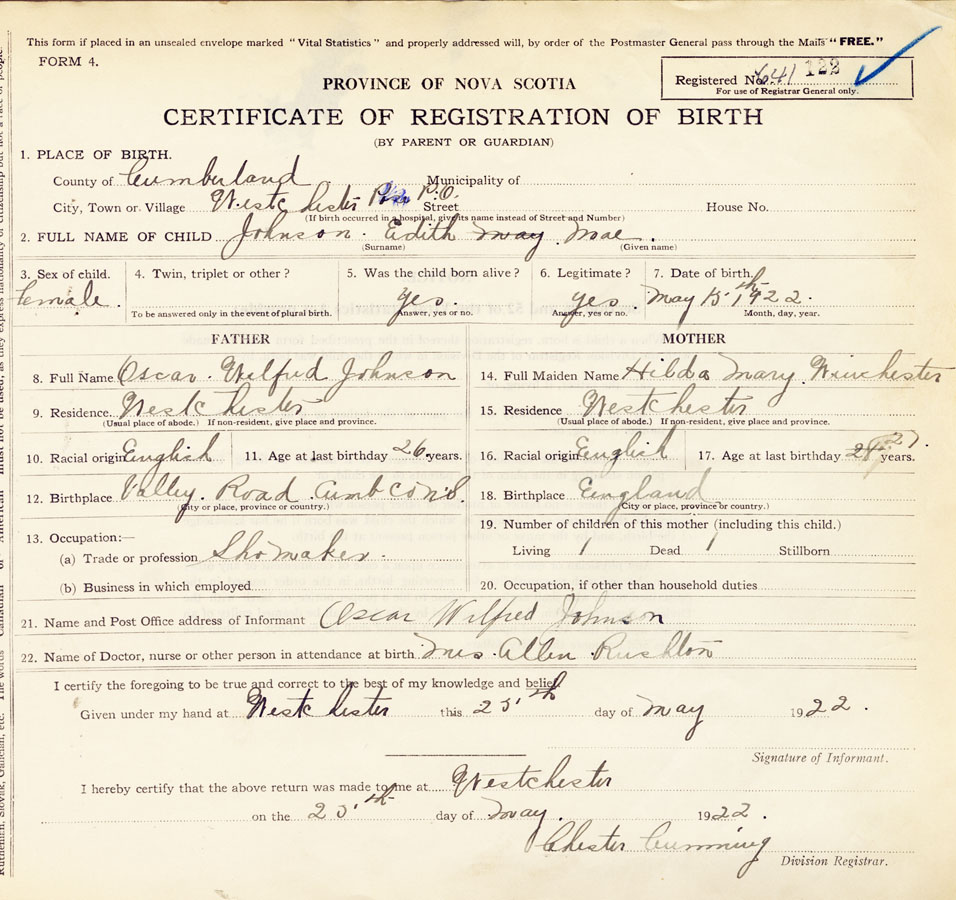 This form if placed in an unsealed envelope marked "Vital Statistics" and properly addressed will, by order of the Postmaster General pass through the Mails "FREE."
FORM 4.
Registered No. 641 122
For use of Registrar General only.
PROVINCE OF NOVA SCOTIA
CERTIFICATE OF REGISTRATION OF BIRTH
(BY PARENT OR GUARDIAN)
1. PLACE OF BIRTH.
County of Cumberland Municipality of
City, Town or Village Westchester P.O. Street House No.
(If birth occurred in a hospital, give its name instead of Street and Number)
2. FULL NAME OF CHILD Johnson. Edith may mae.
(Surname) (Given name)
3. Sex of child. 4. Twin, triplet or other? 5. Was the child born alive? 6. Legitimate? 7. Date of birth.
female. yes. yes. may 15th 1922.
To be answered only in the event of plural birth. Answer, yes or no. Answer, yes or no. Month, day, year.
FATHER MOTHER
8. Full Name Oscar. Wilfred Johnson 14. Full Maiden Name Hilda Mary Winchester
9. Residence Westchester 15. Residence Westchester
(Usual place of abode.) If non-resident, give place and province. (Usual place of abode.) If non-resident, give place and province.
10. Racial origin English 11. Age at last birthday 26 years. 16. Racial origin English 17. Age at last birthday 27 years.
12. Birthplace Valley. Road. Cumb co N.S. 18. Birthplace England
(City or place, province or country.) (City or place, province or country.)
13. Occupation:— 19. Number of children of this mother (including this child.)
(a) Trade or profession Shomaker. Living 1 Dead 1 Stillborn
(b) Business in which employed 20. Occupation, if other than household duties
21. Name and Post Office address of Informant Oscar Wilfred Johnson
22. Name of Doctor, nurse or other person in attendance at birth Mrs. Allen Rushton
I certify the foregoing to be true and correct to the best of my knowledge and belief.
Given under my hand at Westchester this 25th day of May 1922.
Signature of Informant.
I hereby certify that the above return was made to me at Westchester
on the 25th day of May. 1922.
Chester Cumming
Division Registrar.